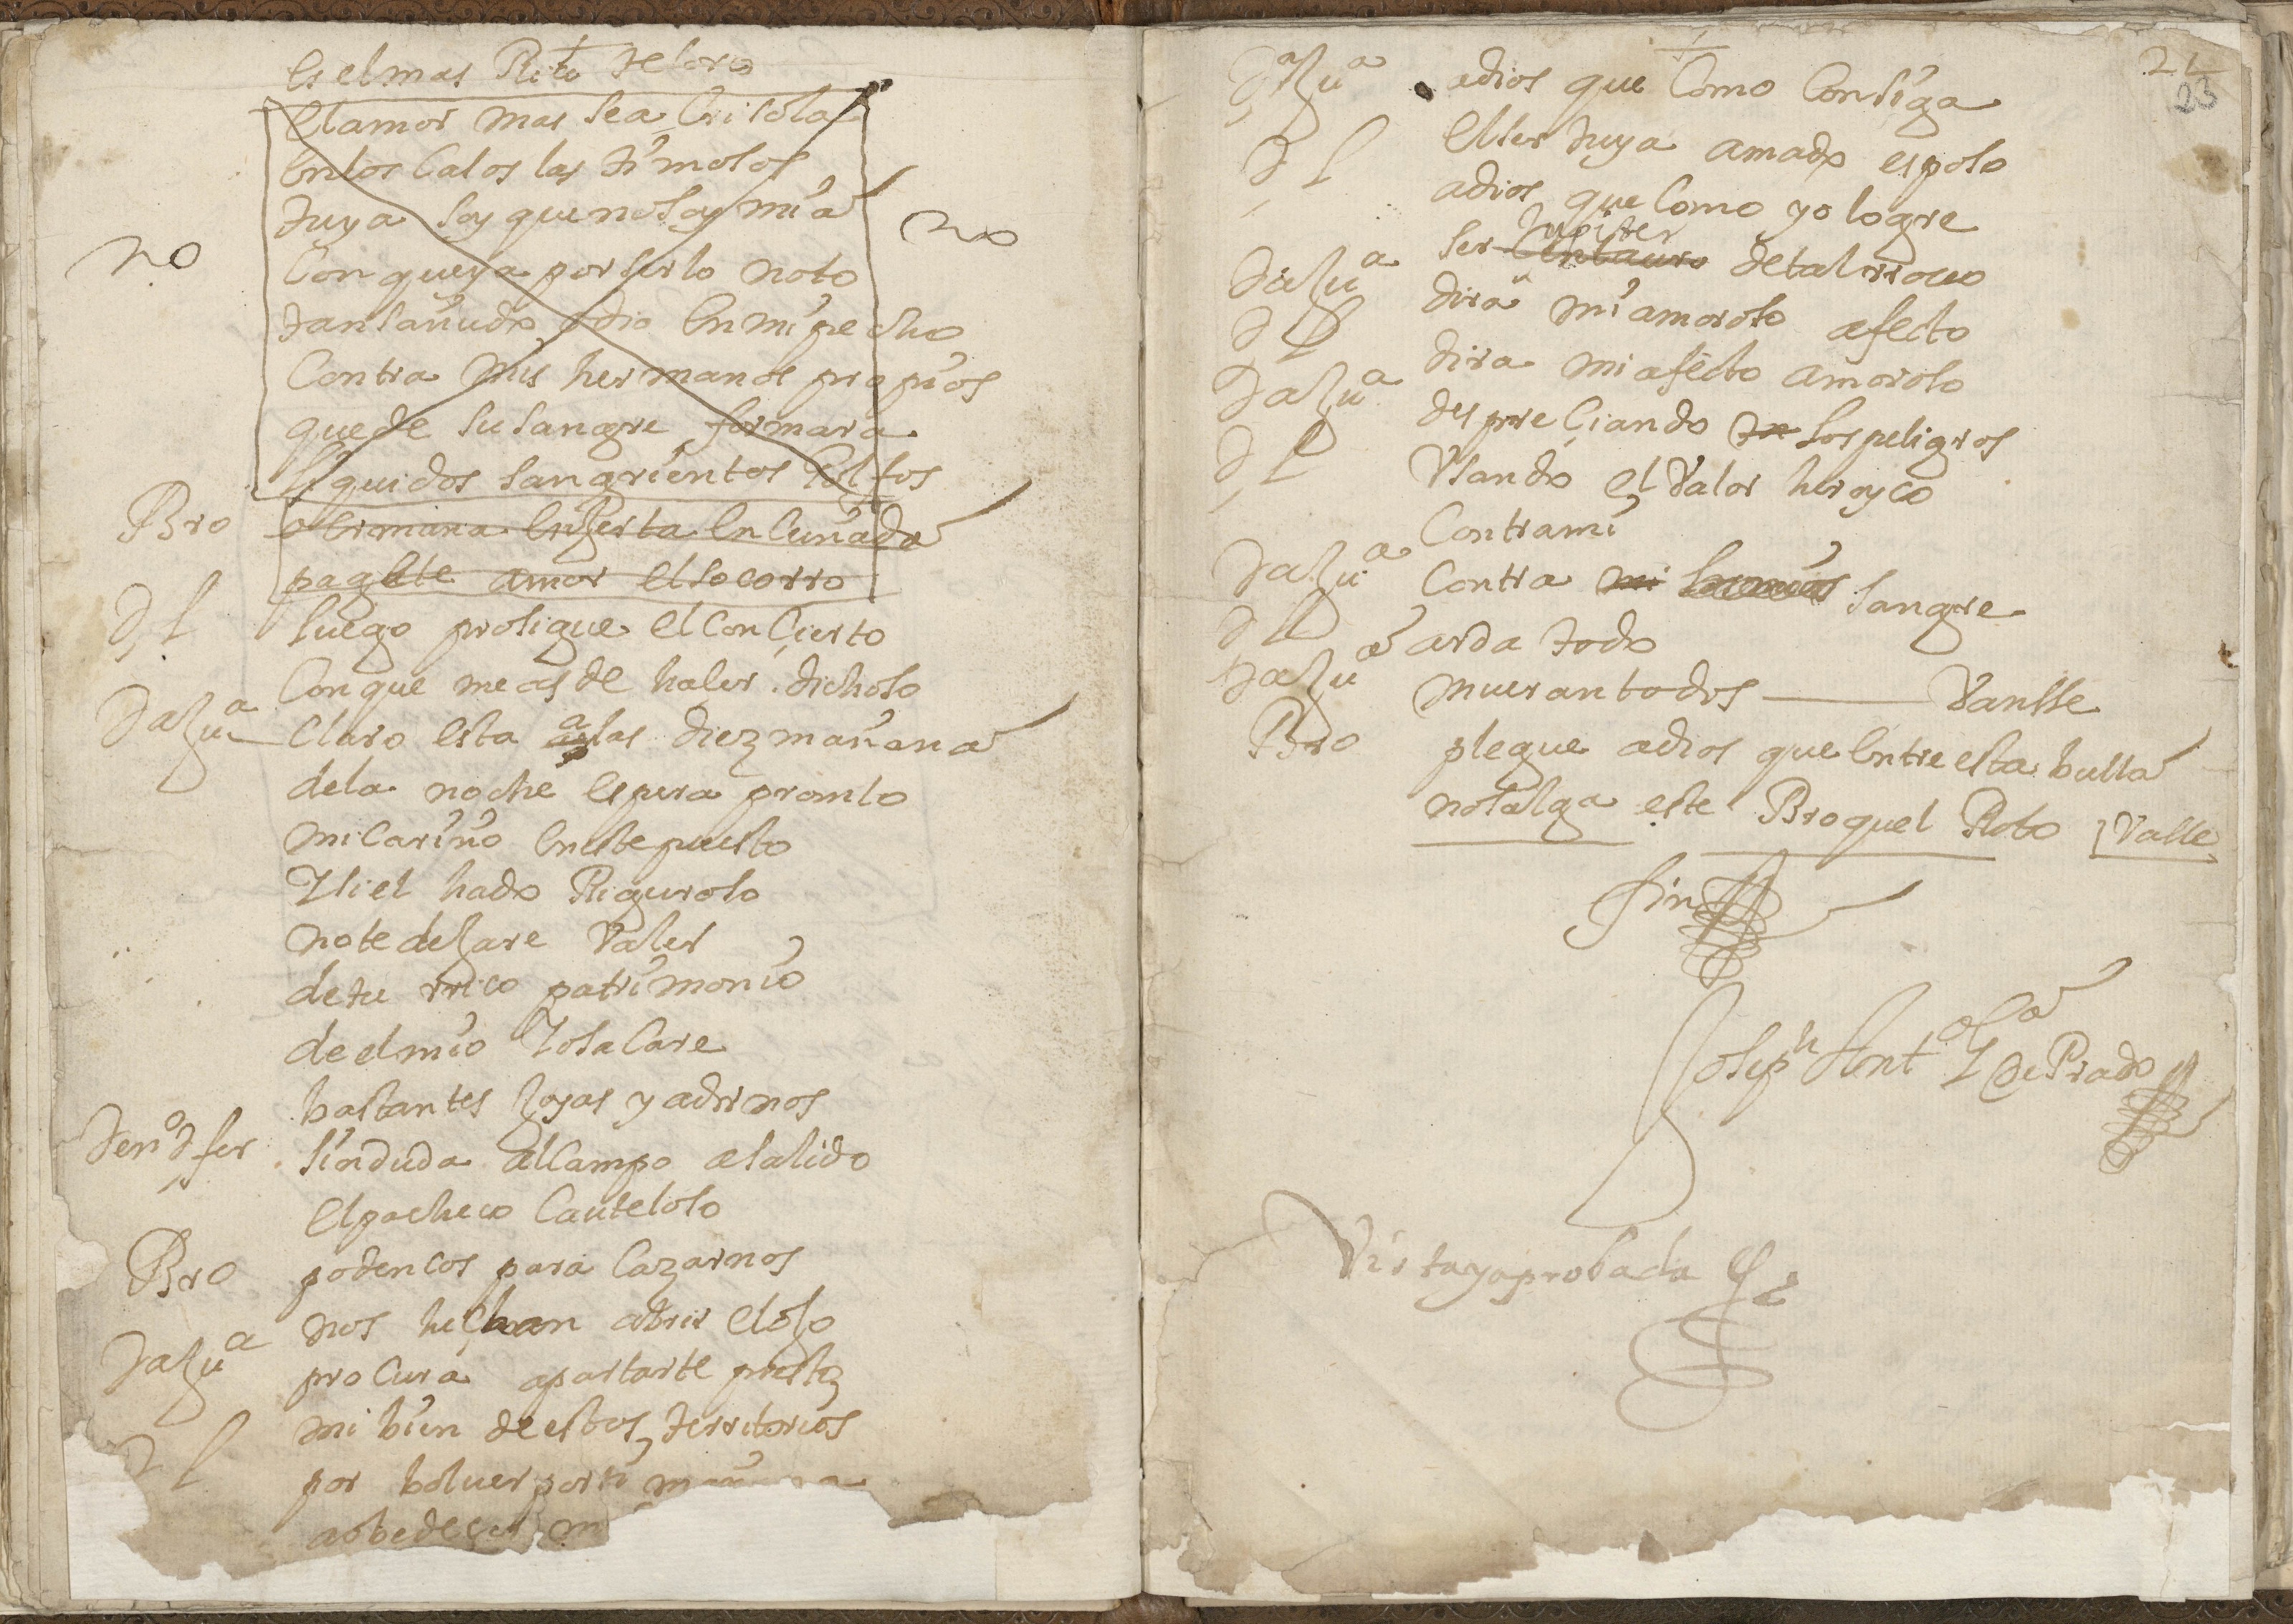 es el mas Rico tesoro
el amor mas sea Crisola
en los Casos las timosos
tuya soy que no soy mia
no
no
Con que ya por serlo noto
tan sañudo odio en mi pecho
Contra mis hermanos propios
que de su sangre formara
liquidos sangrientos Golfos
Bro
en Cuñada
pagete amor el socorro
D, l
luego prosigue el conçierto
Con que me as de haser dichoso
Jasua
Claro esta a las diez mañana
de la noche espera promto
mi cariño en este puesto
Y si el hado Riguroso
no te dejare Valer
de tu rrico patrimonio
de el mio Yo sacare
bastantes joyas y adrnos
Den D fer
sin duda al Campo a salido
el pacheco Cauteloso
Bro
podencos para Cazarnos
nos hechan abrir el ojo
Jasua
procura apartarte presto
mi bien de estos territorios
D l
por bolver por ti
a obedeçer m
21
23
Jasua
adios que Como Consiga
el ser tuya amado esposo
D l
adios que Como yo logre
Jupiter
ser Centauro de tal rroco
Jasua
dira mi amoroso afecto
D l
dira mi afecto amoroso
Jasua
despreçiando los peligros
D, l
Usando el Valor heroyco
Contra mi
Jasua
Contra mi sangre
D l
arda todo
Jasua
mueran todos Vansse
Bro
plegue a dios que entre esta bulla
no salga este Broquel Roto Vasse
fin
Joseph Antº Gª De Prado
Vista y aprobada